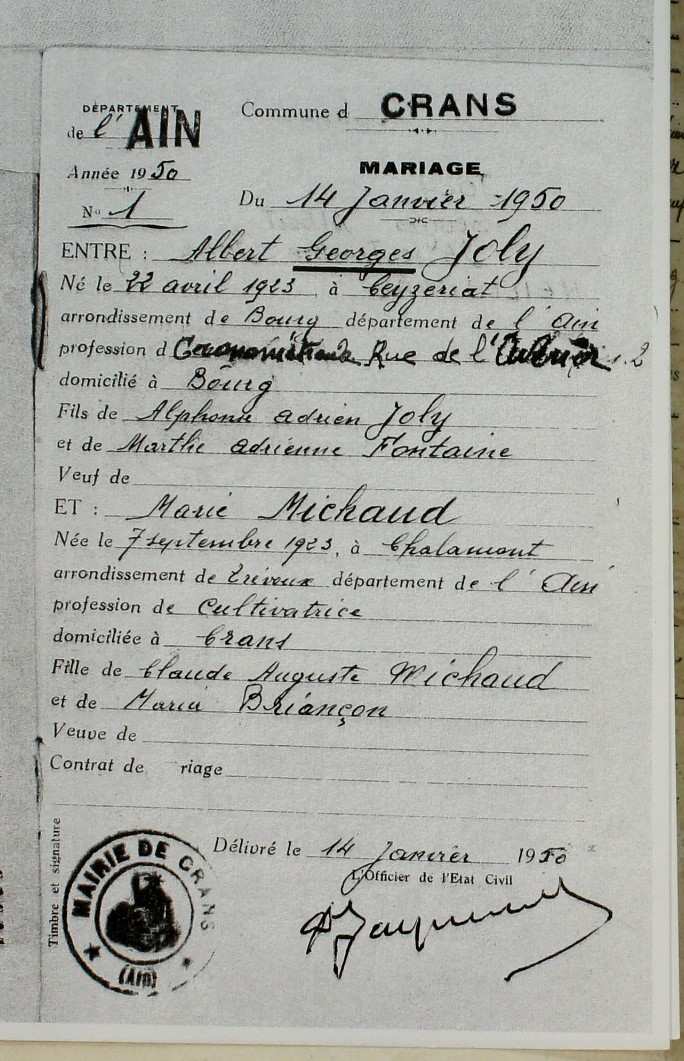 DÉPARTEMENT
de l' AIN
Commune d CRANS
Année 1950
MARIAGE
No 1
Du 14 Janvier 1950
ENTRE : Albert Georges Joly
Né le 22 avril 1923 à Ceyzeriat
arrondissement de Bourg département de l' Ain
profession d Rue de l' 2
domicilié à Bourg
Fils de Alphonse adrien Joly
et de Marthe adrienne Fontaine
Veuf de
ET : Marie Michaud
Née le 7 septembre 1923, à Chalamont
arrondissement de Trévoux département de l' Ain
profession de Cultivatrice
domiciliée à Crans
Fille de Claude Auguste Michaud
et de Maria Briançon
Veuve de
Contrat de riage
Timbre et signature
Délivré le 14 Janvier 1950
L'Officier de l'Etat Civil
MAIRIE DE CRANS
(AIN)